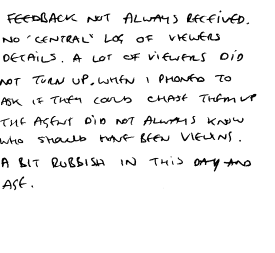 FEEDBACK NOT ALWAYS RECEIVED.
NO 'CENTRAL' LOG OF VIEWERS
DETAILS. A LOT OF VIEWERS DID
NOT TURN UP. WHEN I PHONED TO
ASK IF THEY COULD CHASE THEM UP
THE AGENT DID NOT ALWAYS KNOW
WHO SHOULD HAVE BEEN VIEWING.
A BIT RUBBISH IN THIS DAY AND
AGE.